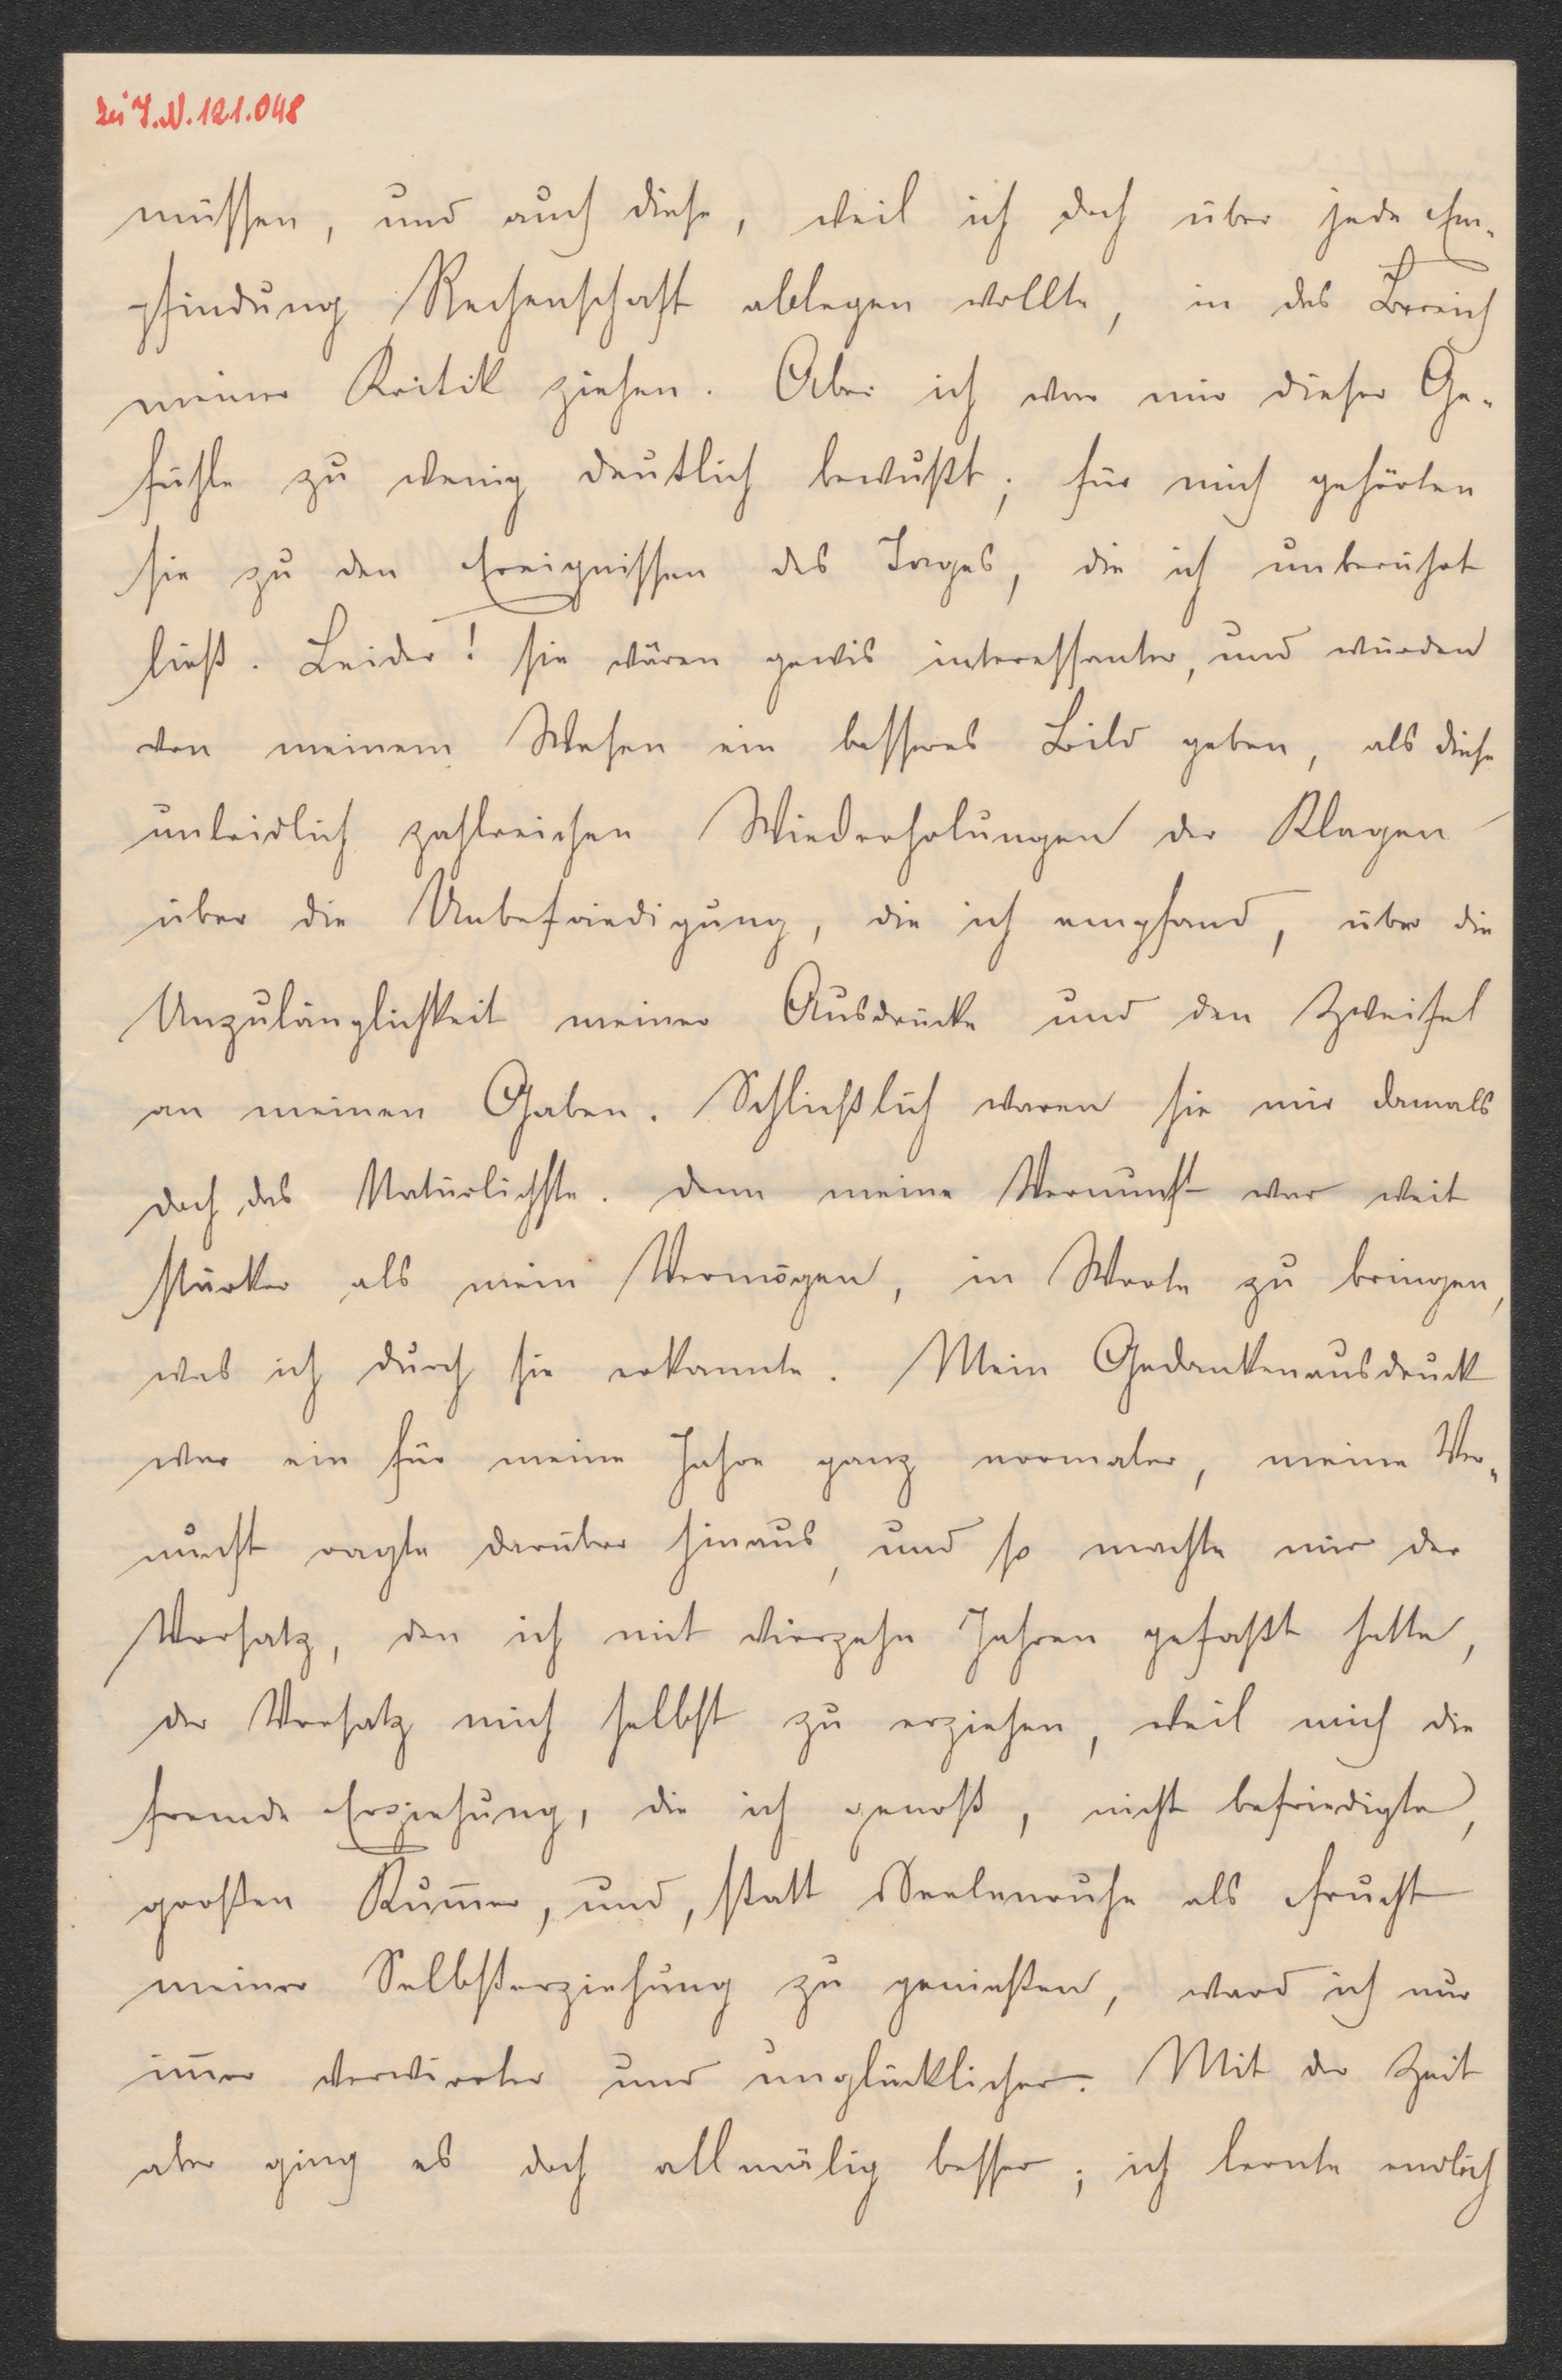 zu I.N. 121.048
müssen, und auch diese, weil ich doch über jede Em-
pfindung Rechenschaft ablegen wollte, in das Bereich
meiner Kritik ziehen. Aber ich war mir dieser Ge-
fühle zu wenig deutlich bewußt; für mich gehörten
sie zu den Ereignissen des Tages, die ich unberührt
ließ. Leider! sie wären gewis interessanter, und würden
von meinem Wesen ein besseres Bild geben, als diese
unleidlich zahlreichen Wiederholungen der Klagen
über die Unbefriedigung, die ich empfand, über die
Unzulänglichkeit meiner Ausdrücke und den Zweifel
an meinen Gaben. Schließlich waren sie mir damals
doch das Natürlichste. denn meine Vernunft war weit
stärker als mein Vermögen, in Worte zu bringen,
was ich durch sie erkannte. Mein Gedankenausdruck
war ein für meine Jahre ganz normaler, meine Ver-
nunft ragte darüber hinaus, und so machte mir der
Vorsatz, den ich mit vierzehn Jahren gefaßt hatte,
der Vorsatz mich selbst zu erziehen, weil mich die
fremde Erziehung, die ich genoß, nicht befriedigte,
großen Kum̅er, und, statt Seelenruhe als Frucht
meiner Selbsterziehung zu genießen, ward ich nur
im̅er verwirrter und unglücklicher. Mit der Zeit
aber ging es doch allmälig besser; ich lernte endlich